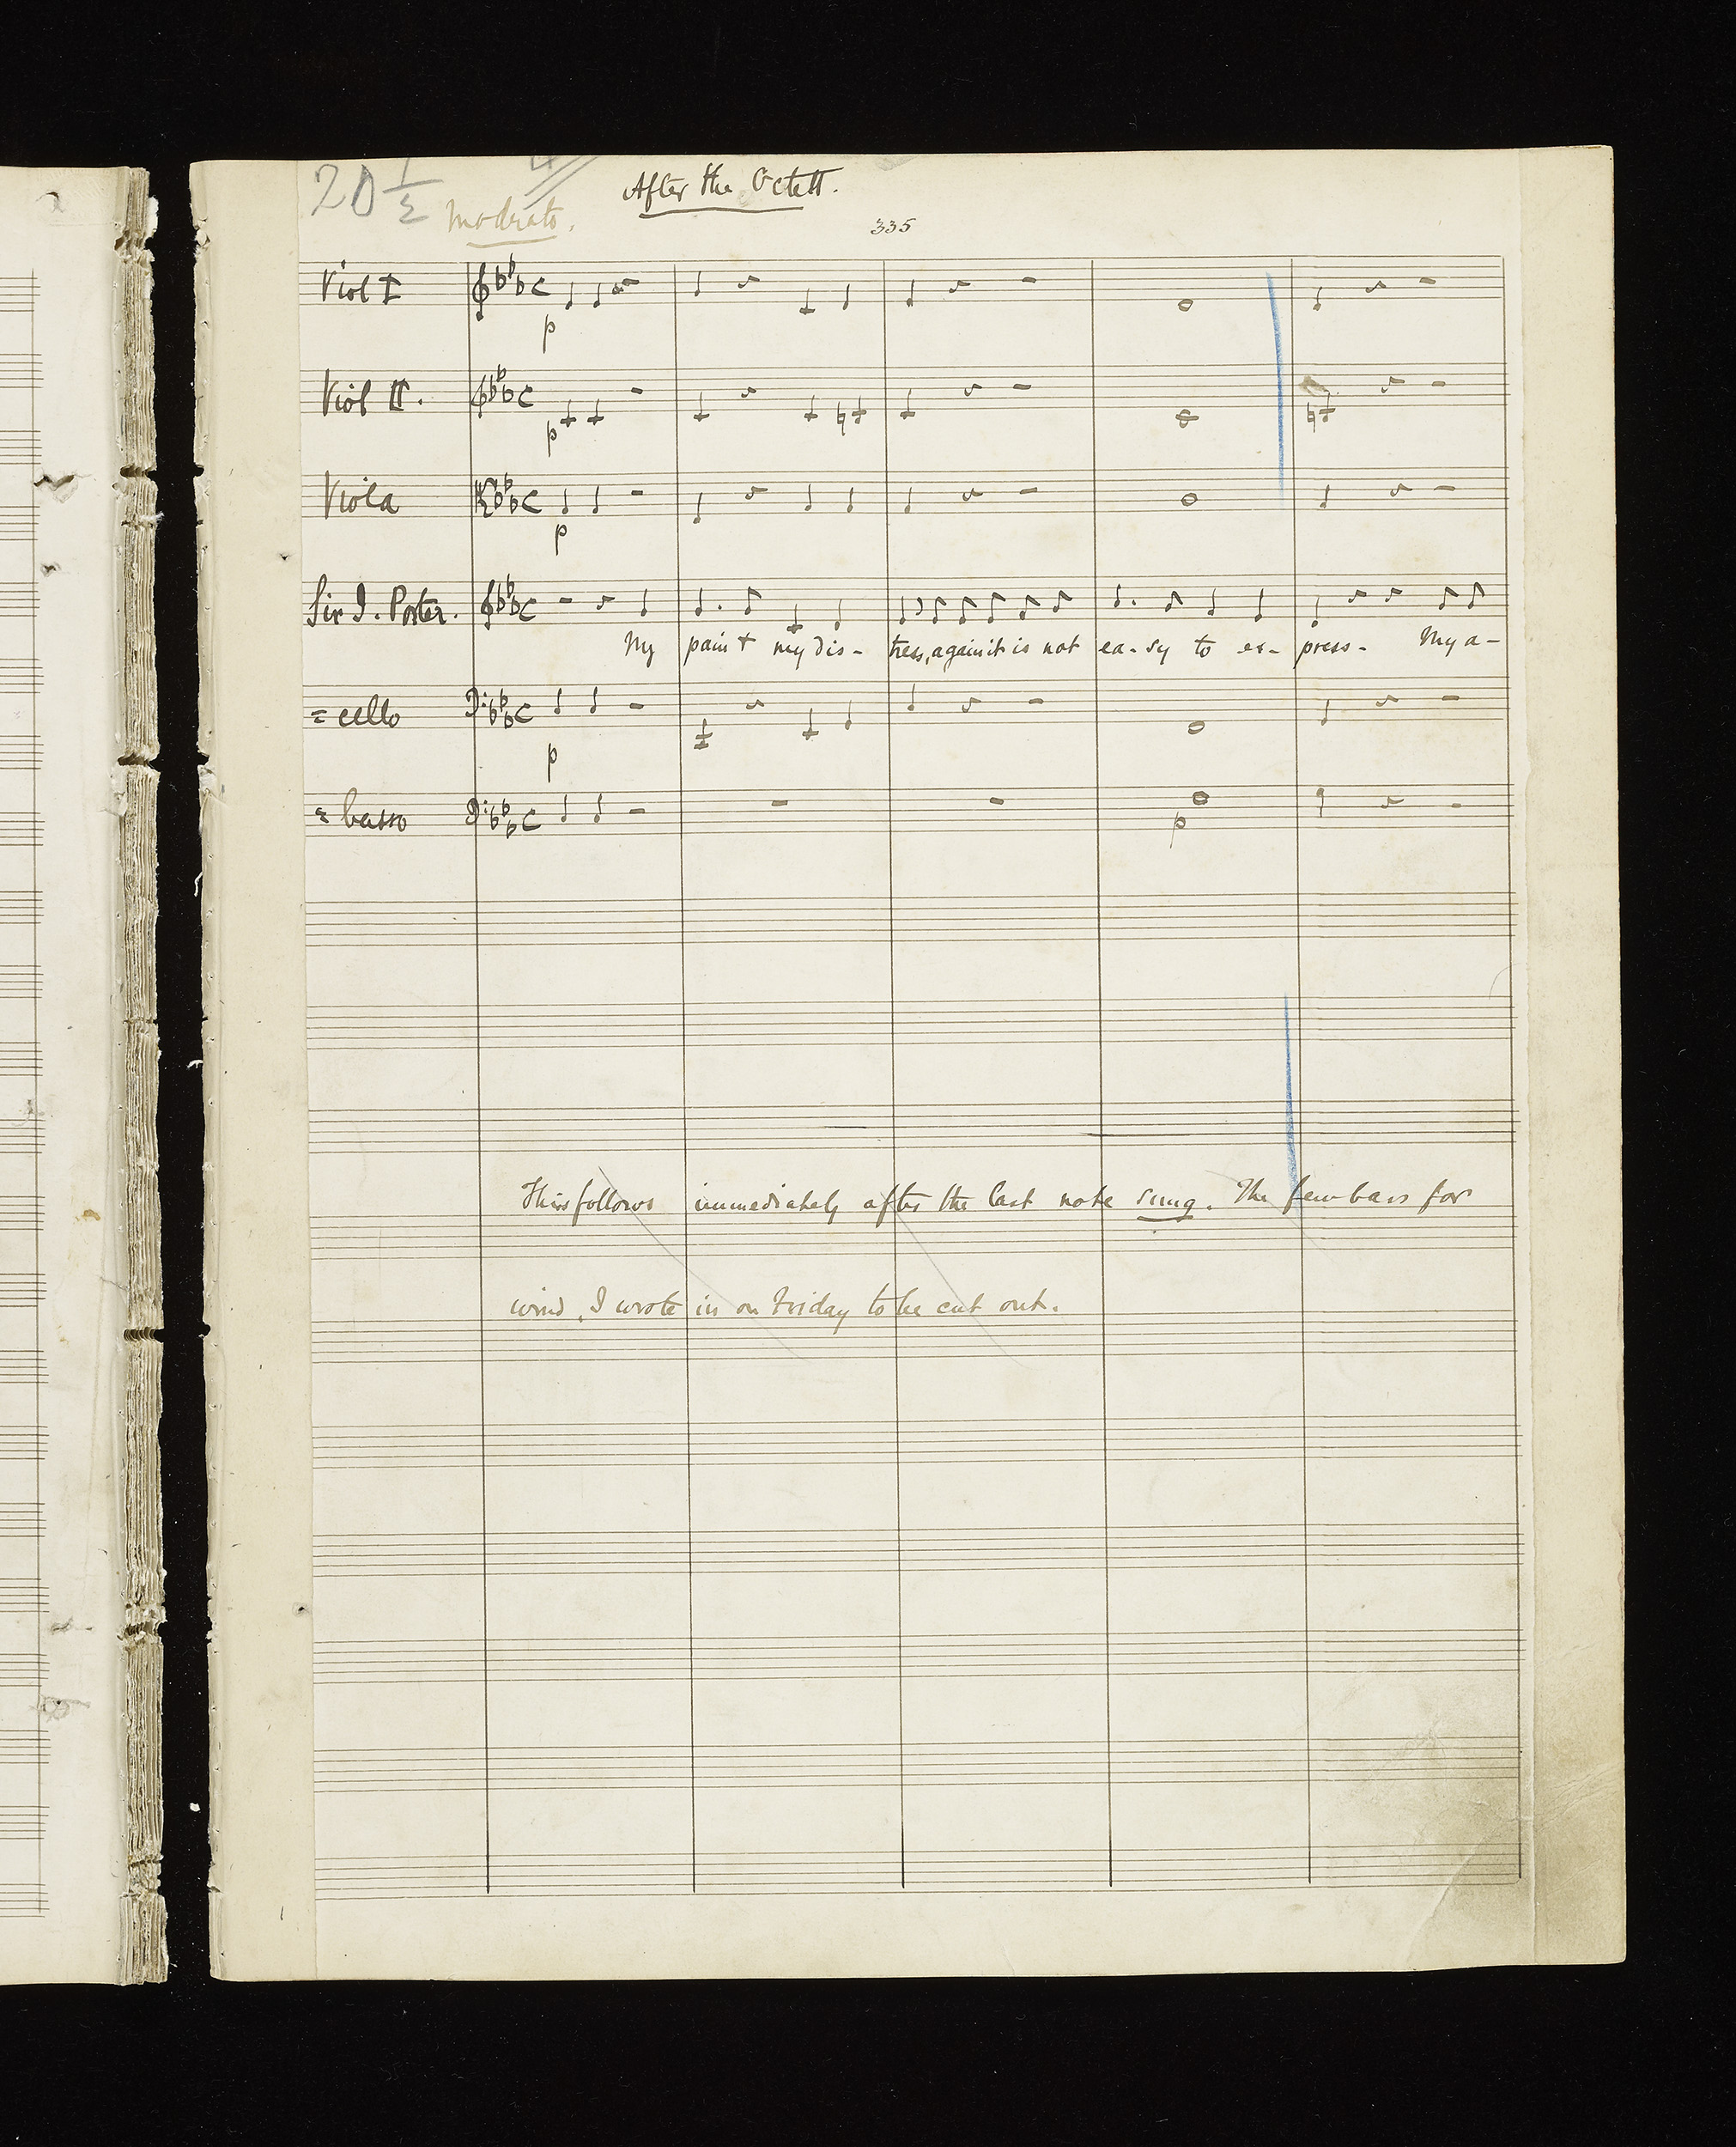 20 1/2
After the Octett.
Moderato.
335
Viol I
p
Viol II.
p
Viola
p
Sir J. Porter.
My pain + my dis- tress, again it is not ea-sy to ex- press- My a-
= cello
p
= basso
p
This follows immediately after the last note sung. The few bars for
wind, I wrote in on Friday to be cut out.